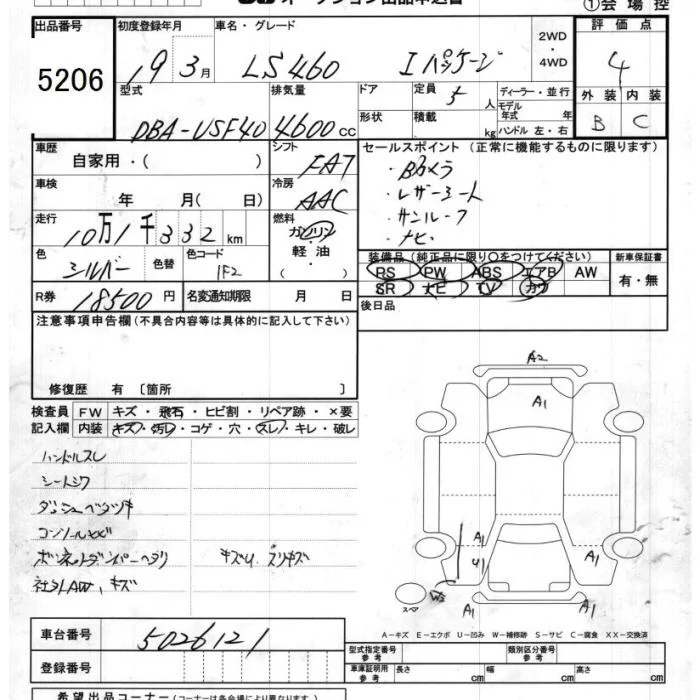 オークション出品申込書
①会場控
出品番号 初度登録年月 車名・グレード 2WD 評価点
5206 19 3月 LS460 Iパッケージ ・4WD 4
型式 排気量 ドア 定員 5人 ディーラー・並行 外装 内装
DBA-USF40 4600cc 形状 積載 kg モデル年式 年 ハンドル 左・右 B C
車歴 自家用・( ) シフト FAT セールスポイント (正常に機能するものに限ります)
・Bカメラ
車検 年 月(日) 冷房 AAC ・レザーシート
・サンルーフ
走行 10万1千332km 燃料 ガソリン・軽油・( ) ・ナビ
色 シルバー 色替 色コード 1F2 装備品 (純正品に限り○をつけてください) 新車保証書
PS PW ABS エアB AW 有・無
R券 18500円 名変通知期限 月 日 SR ナビ TV カワ
注意事項申告欄 (不具合内容等は具体的に記入して下さい) 後日品
修復歴 有 〔箇所 〕
検査員 FW キズ・飛石・ヒビ割・リペア跡・×要
記入欄 内装 キズ・汚レ・コゲ・穴・スレ・キレ・破レ
ハンドルスレ
シートシワ
ダッシュベタツキ
コンソール
ボンネットダンパーヘタリ キズ スリキズ
社外AW、キズ
A2
A1
A1
U1
A1
スペア
A1
A1
A−キズ E−エクボ U−凹み W−補修跡 S−サビ C−腐食 XX−交換済
車台番号 5026121
型式指定番号 参考 類別区分番号 参考
登録番号 車庫証明用 参考 長さ cm 幅 cm 高さ cm
希望出品コーナー (コーナーは各会場により異なります)